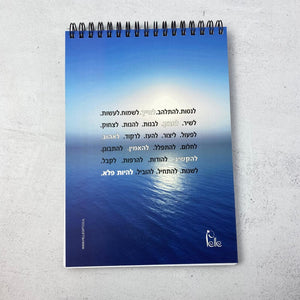 לנסות. להתלהב. לחייך. לשמוח. לעשות.
לשיר. לבנות. להנות. לצחוק.
לפעול. ליצור. להעז. לרקוד. לאהוב.
לחלום. להתפלל. להאמין. להתבונן.
להקשיב. להודות. להרפות. לקבל.
לשנות. להתחיל. להוביל. להיות פלא.
Pelle